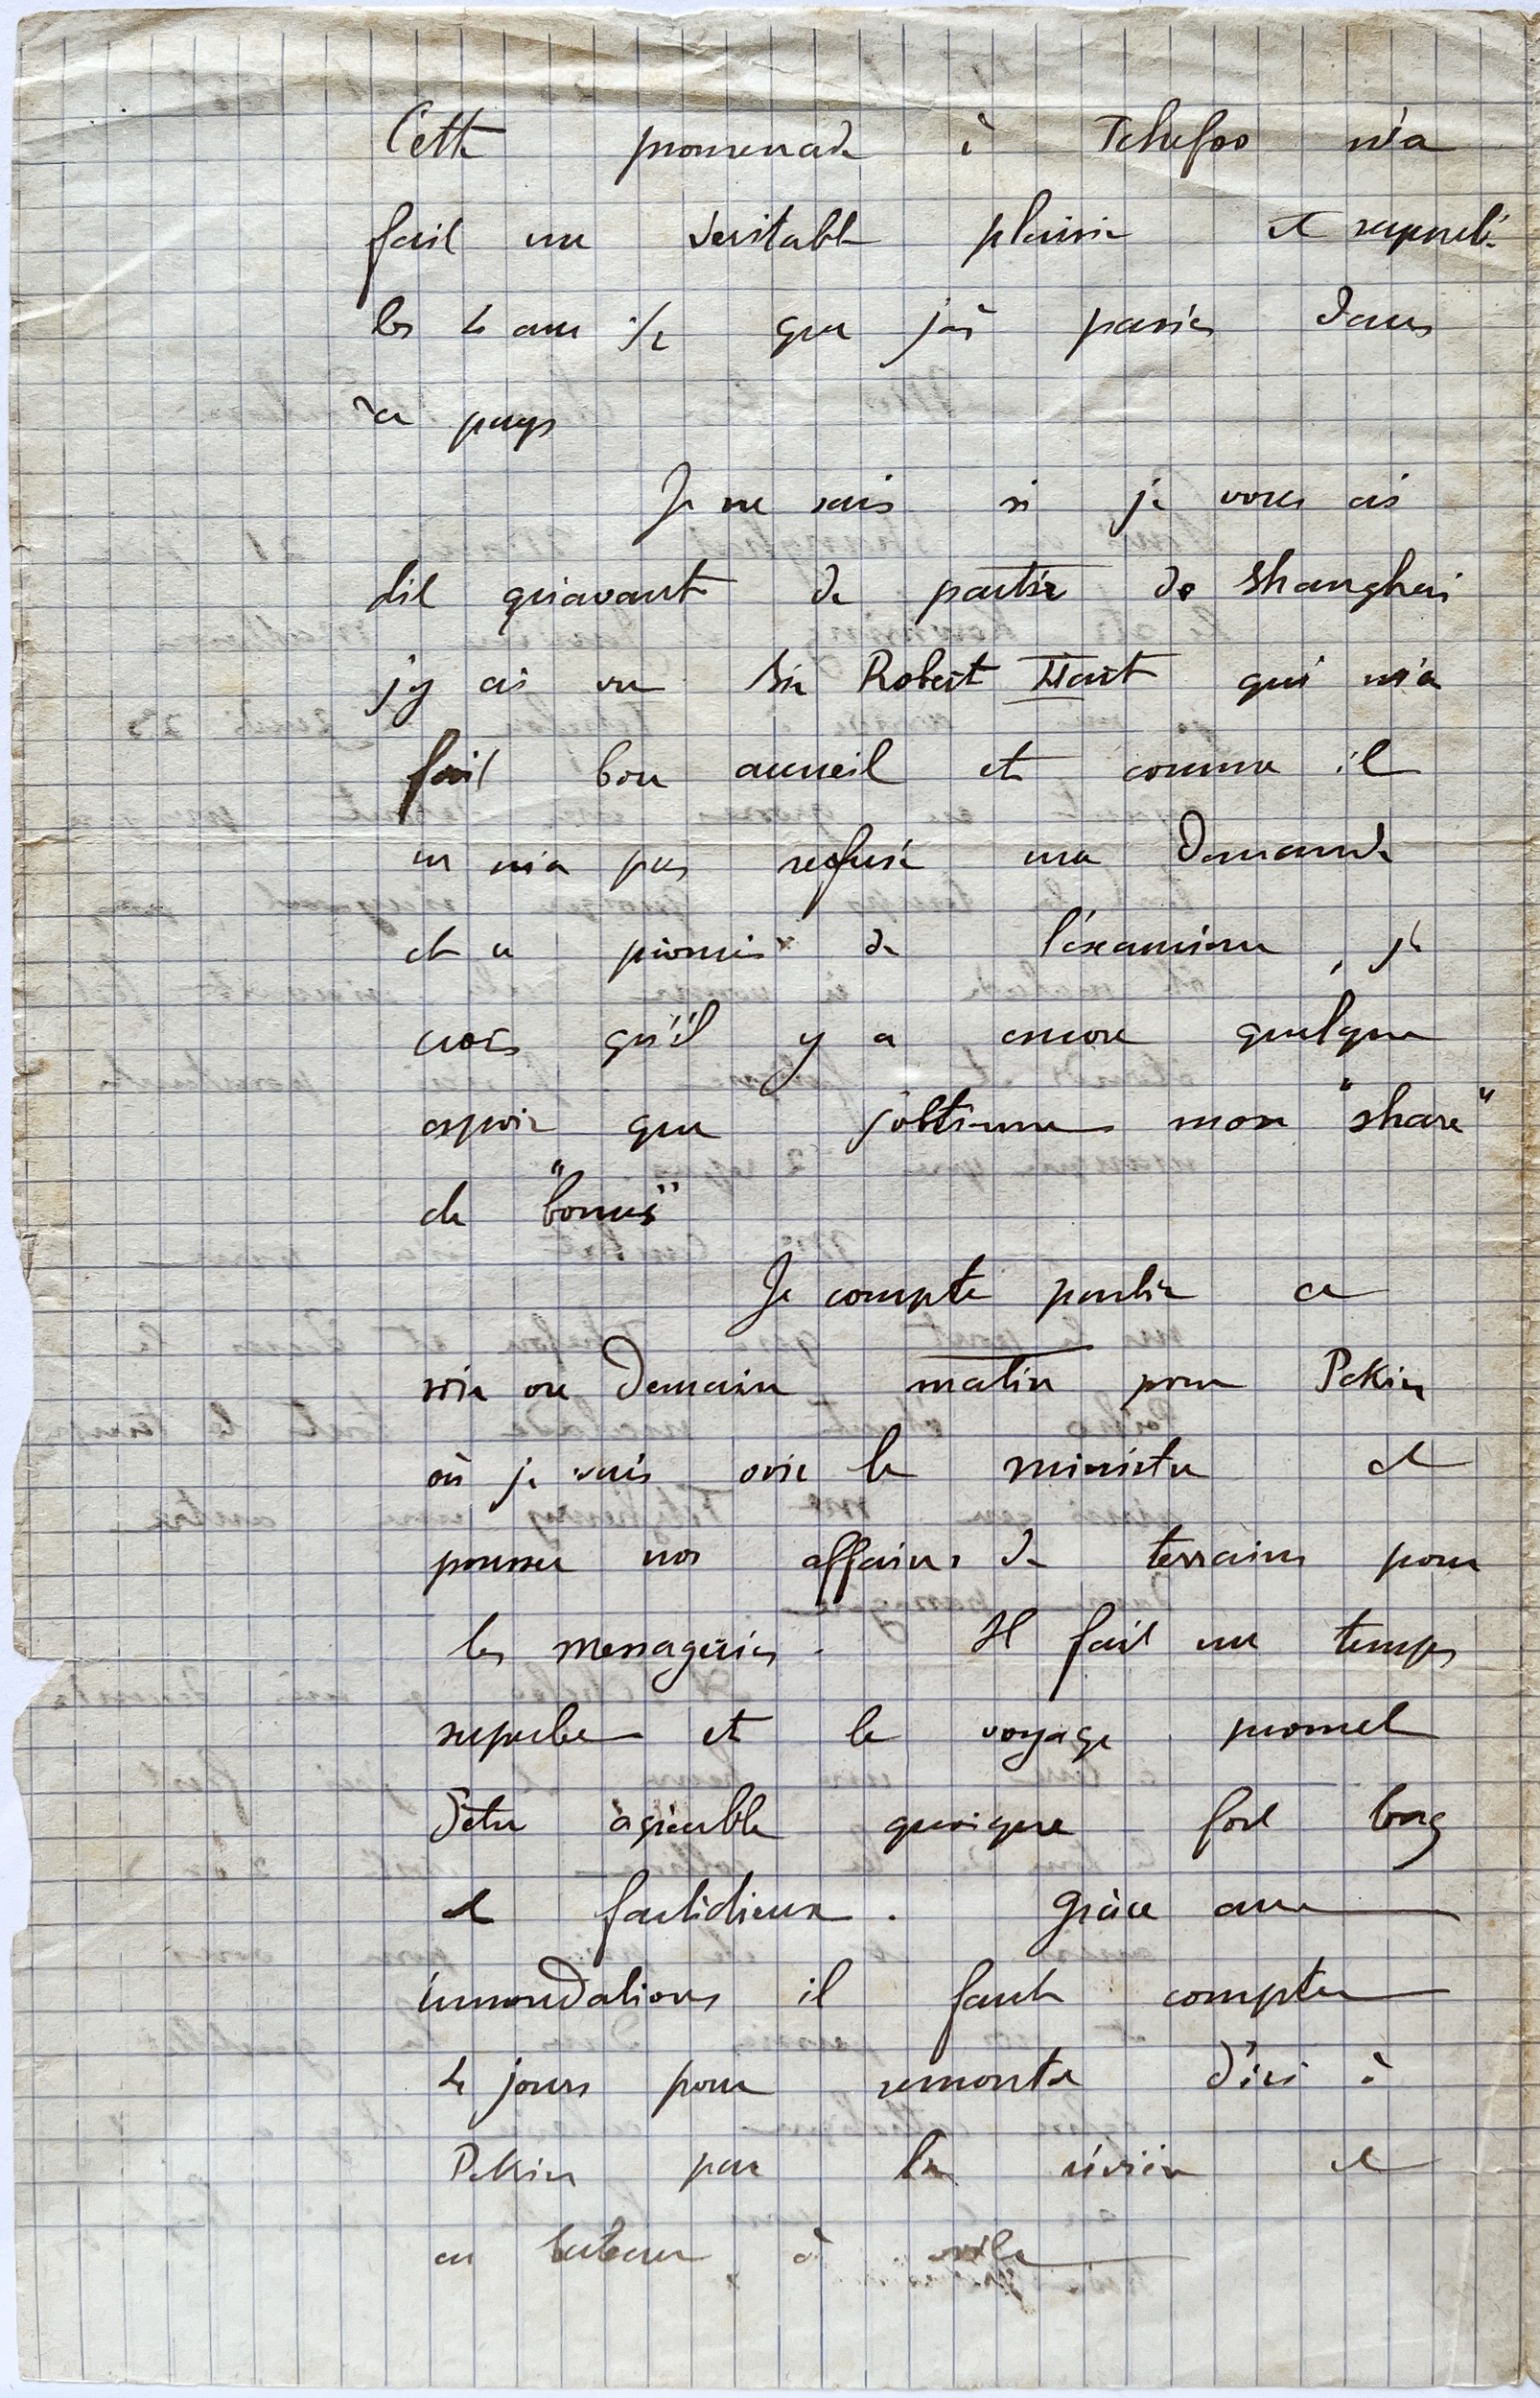 Cette promenade à Tchefoo m'a
fait un veritable plaisir et rappelé
les 4 ans 1/2 que j'ai passés dans
ce pays
Je ne sais si je vous ais
dit qu'avant de partir de Shanghai
j'y ais vu Sir Robert Hart qui m'a
fait bon accueil et comme il
ne m'a pas refusé ma demande
et a promis de l'éxaminer, je
crois qu'il y a encore quelque
espoir que j'obtienne mon "share"
de "bonus"
Je compte partir ce
soir ou demain matin pour Pekin
où je vais voir le ministre et
pousser nos affaires de terrains pour
les messageries. Il fait un temps
superbe et le voyage promet
d'etre agréable quoique fort long
et fastidieux. Grâce aux
innondations il faut compter
4 jours pour remonter d'ici à
Pekin par la rivière et
en bateau à voile